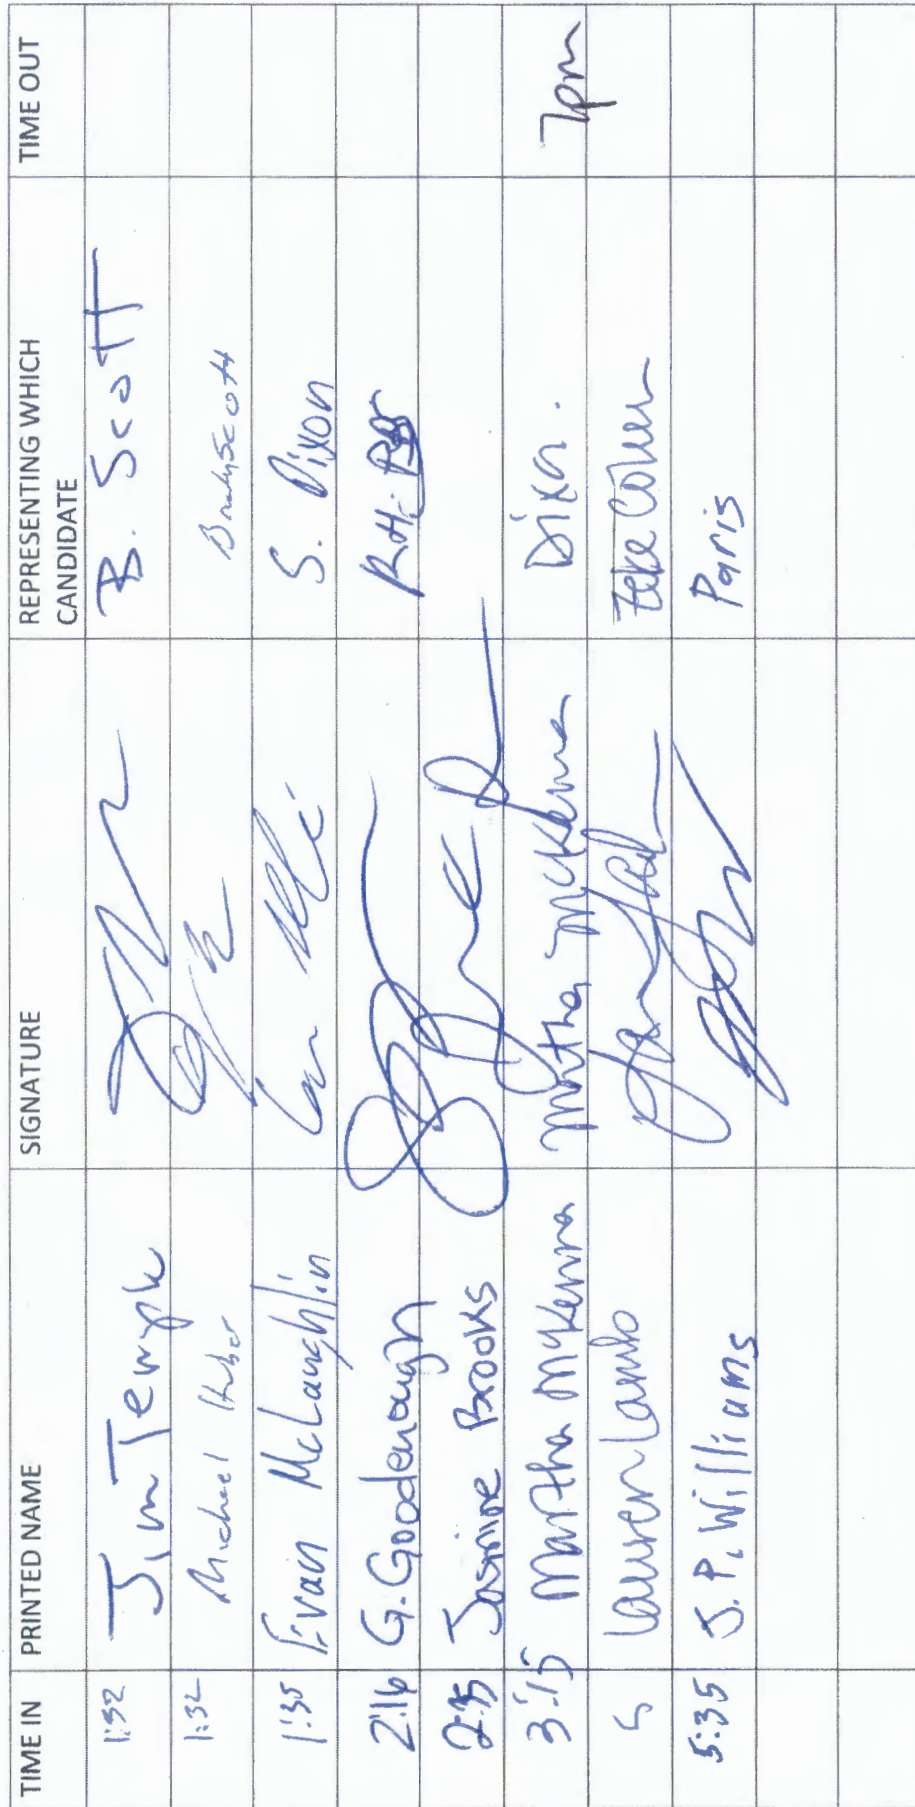 TIME IN PRINTED NAME SIGNATURE REPRESENTING WHICH CANDIDATE TIME OUT
1:32 Jim Temple B. Scott
1:32 Michael Brandy Scott
1:35 Evan McLaughlin S. Dixon
2:16 G. Goodenough
2:35 Jasmine Brooks
3:15 Martha McKenna Martha McKenna Dixon. 7pm
5 Lauren Lamb Zeke Cohen
5:35 J.P. Williams Paris